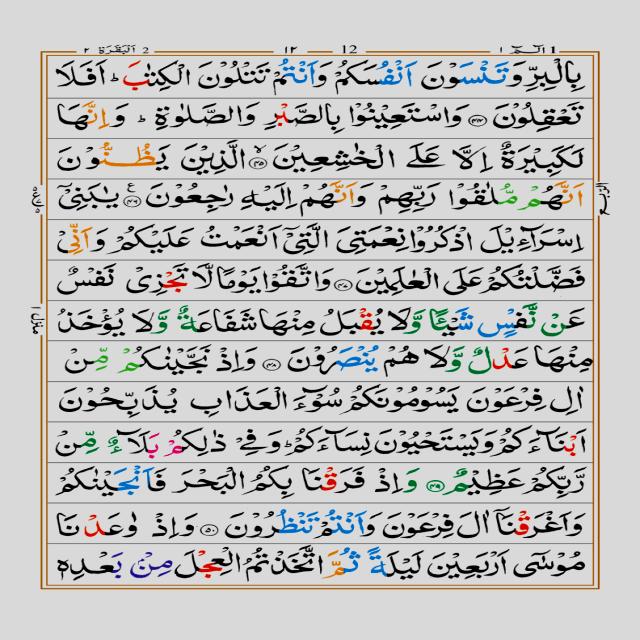 الٓمّٓ ١ 12 ١٢ البقرة ٢ 2
بِالْبِرِّ وَتَنْسَوْنَ اَنْفُسَكُمْ وَاَنْتُمْ تَتْلُوْنَ الْكِتٰبَ ؕ اَفَلَا
تَعْقِلُوْنَ ﴿۴۴﴾ وَاسْتَعِيْنُوْا بِالصَّبْرِ وَالصَّلٰوةِ ؕ وَاِنَّهَا
لَكَبِيْرَةٌ اِلَّا عَلَى الْخٰشِعِيْنَ ﴿۴۵﴾ الَّذِيْنَ يَظُنُّوْنَ
اَنَّهُمْ مُّلٰقُوْا رَبِّهِمْ وَاَنَّهُمْ اِلَيْهِ رٰجِعُوْنَ ﴿۴۶﴾ يٰبَنِيْٓ
اِسْرَآءِيْلَ اذْكُرُوْا نِعْمَتِيَ الَّتِيْٓ اَنْعَمْتُ عَلَيْكُمْ وَاَنِّيْ
فَضَّلْتُكُمْ عَلَى الْعٰلَمِيْنَ ﴿۴۷﴾ وَاتَّقُوْا يَوْمًا لَّا تَجْزِيْ نَفْسٌ
عَنْ نَّفْسٍ شَيْـًٔا وَّلَا يُقْبَلُ مِنْهَا شَفَاعَةٌ وَّلَا يُؤْخَذُ
مِنْهَا عَدْلٌ وَّلَا هُمْ يُنْصَرُوْنَ ﴿۴۸﴾ وَاِذْ نَجَّيْنٰكُمْ مِّنْ
اٰلِ فِرْعَوْنَ يَسُوْمُوْنَكُمْ سُوْٓءَ الْعَذَابِ يُذَبِّحُوْنَ
اَبْنَآءَكُمْ وَيَسْتَحْيُوْنَ نِسَآءَكُمْ ؕ وَفِيْ ذٰلِكُمْ بَلَآءٌ مِّنْ
رَّبِّكُمْ عَظِيْمٌ ﴿۴۹﴾ وَاِذْ فَرَقْنَا بِكُمُ الْبَحْرَ فَاَنْجَيْنٰكُمْ
وَاَغْرَقْنَآ اٰلَ فِرْعَوْنَ وَاَنْتُمْ تَنْظُرُوْنَ ﴿۵۰﴾ وَاِذْ وٰعَدْنَا
مُوْسٰٓى اَرْبَعِيْنَ لَيْلَةً ثُمَّ اتَّخَذْتُمُ الْعِجْلَ مِنْۢ بَعْدِهٖ
الربع
منزل ١